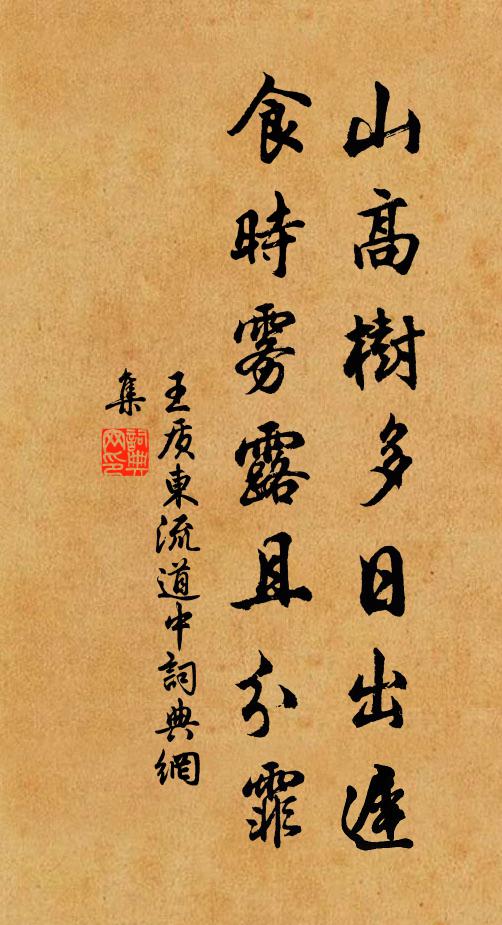 山高樹多日出遲
食時雾露且分霏
王质東流道中詞典網
集
詞典網印